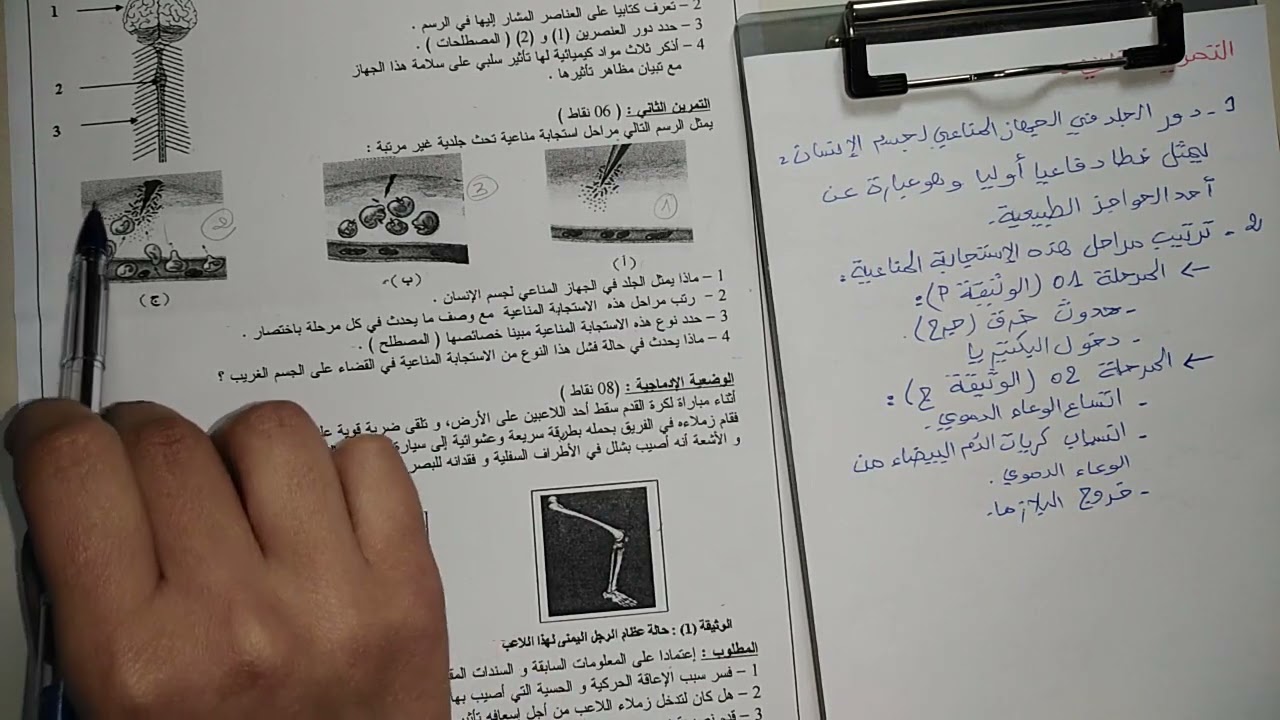 2 – تعرف كتابيا على العناصر المشار إليها في الرسم .
3 – حدد دور العنصرين (1) و (2) ( المصطلحات ) .
4 – أذكر ثلاث مواد كيميائية لها تأثير سلبي على سلامة هذا الجهاز
مع تبيان مظاهر تأثيرها .
1
2
3
التمرين الثاني : ( 06 نقاط )
يمثل الرسم التالي مراحل استجابة مناعية تحث جلدية غير مرتبة :
1
3
2
(أ)
(ب)
(ج)
1 – ماذا يمثل الجلد في الجهاز المناعي لجسم الإنسان .
2 – رتب مراحل هذه الاستجابة المناعية مع وصف ما يحدث في كل مرحلة باختصار .
3 – حدد نوع هذه الاستجابة المناعية مبينا خصائصها ( المصطلح ) .
4 – ماذا يحدث في حالة فشل هذا النوع من الاستجابة المناعية في القضاء على الجسم الغريب ؟
الوضعية الإدماجية : (08 نقاط )
أثناء مباراة لكرة القدم سقط أحد اللاعبين على الأرض، و تلقى ضربة قوية
فقام زملاءه في الفريق بحمله بطريقة سريعة وعشوائية إلى
و الأشعة أنه أصيب بشلل في الأطراف السفلية و فقدانه للبصر
الوثيقة (1) : حالة عظام الرجل اليمنى لهذا اللاعب
المطلوب : إعتمادا على المعلومات السابقة و السندات
1 – فسر سبب الإعاقة الحركية و الحسية التي أصيب بها
2 – هل كان لتدخل زملاء اللاعب من أجل إسعافه
3 – قدم
1 - دور الجلد في الجهاز المناعي لجسم الإنسان :
يمثل خطا دفاعيا أوليا وهو عبارة عن
أحد الحواجز الطبيعية.
2 - ترتيب مراحل هذه الإستجابة المناعية :
← المرحلة 01 (الوثيقة أ):
- حدوث خرق (جرح).
- دخول البكتيريا
← المرحلة 02 (الوثيقة ج):
- اتساع الوعاء الدموي
- انسلال كريات الدم البيضاء من
الوعاء الدموي .
- خروج البلازما.